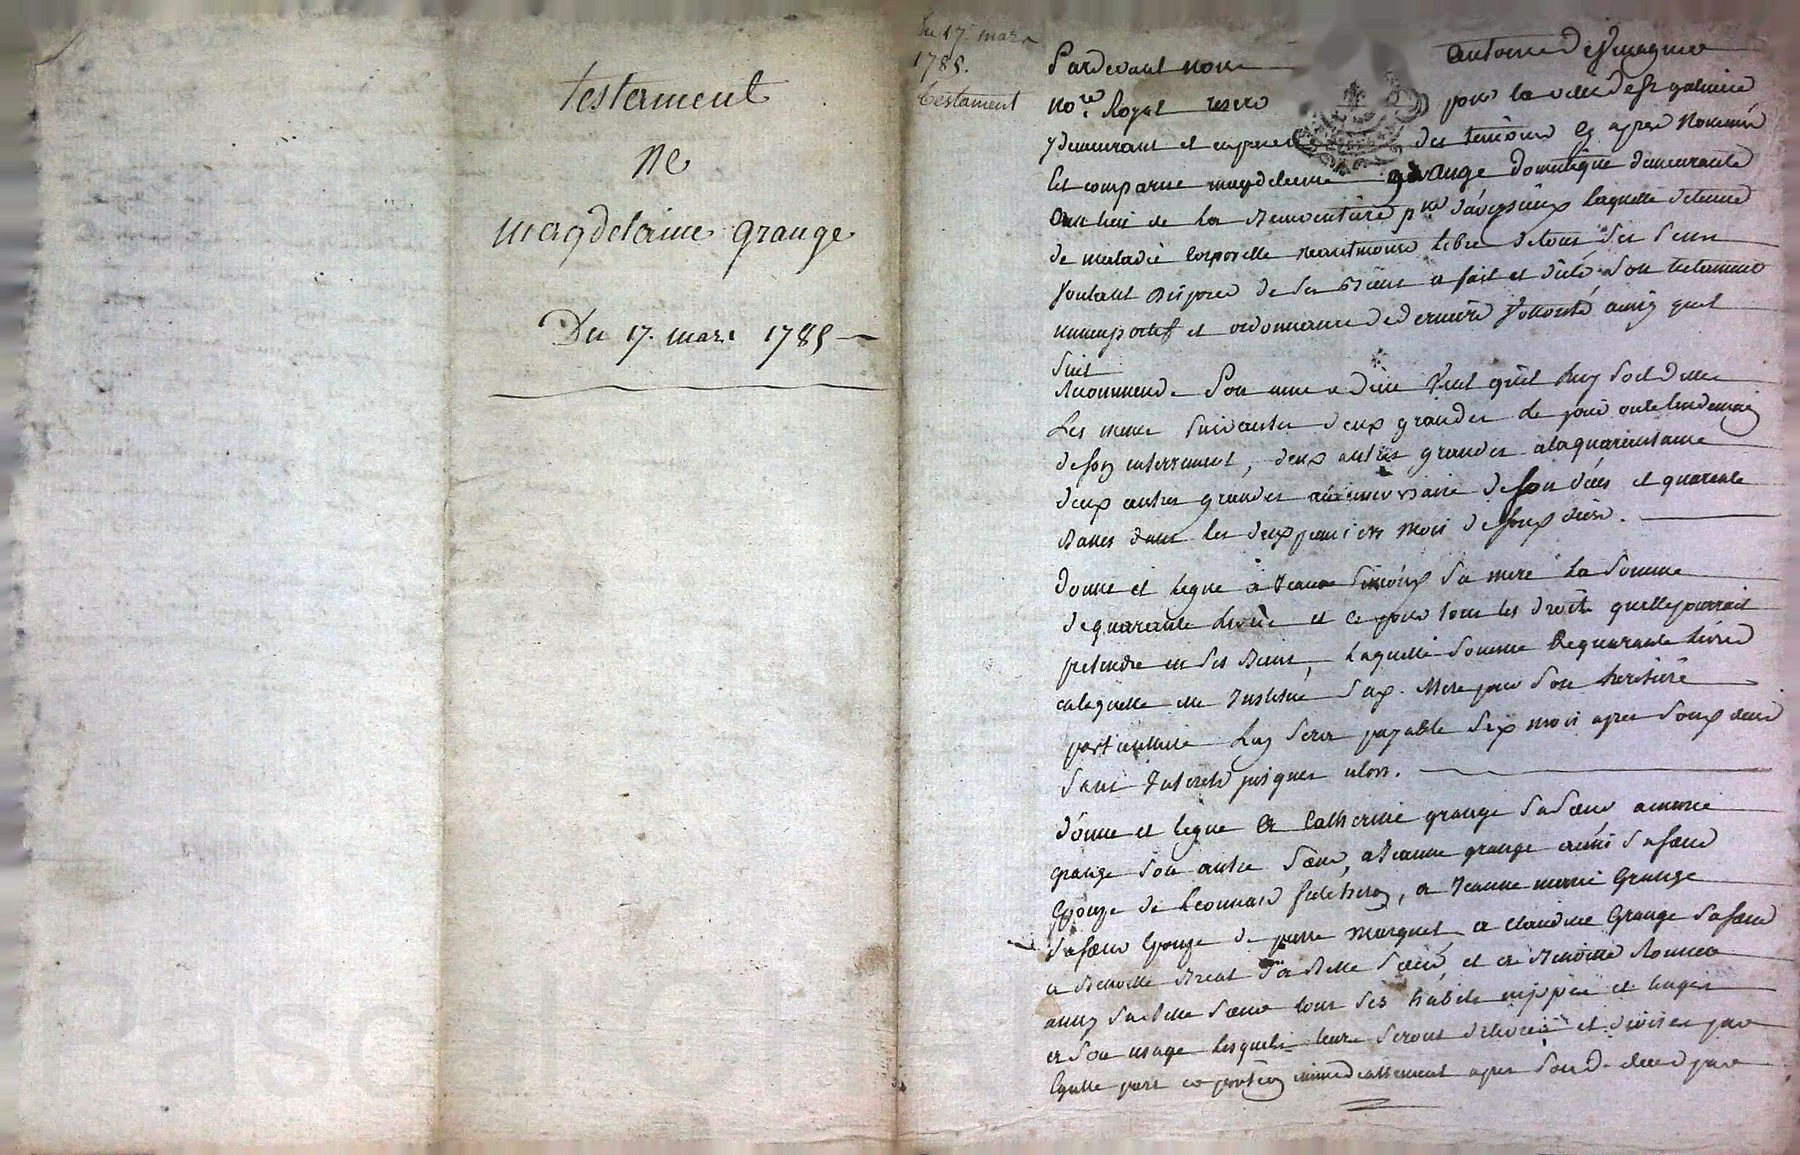 testament
De
magdelaine grange
Du 17. mars 1785
Du 17. mars
1785.
testament
Pardevant nous Antoine Desvuagnes
no.re Royal reservé pour la ville de st galmier
y demeurant et en presence des temoins cy apres nommés
Est comparue magdeleine grange domestique demeurante
au lieu de la p.sse d'aveyzieux laquelle detenue
de maladie corporelle neantmoins libre de tous ses sens
Voulant disposer de ses Biens a fait et dicté son testament
nuncupatif et ordonnance de derniere Volonté ainsy quil
suit
Recommende son ame a dieu Veut quil luy soit dittes
Les messes suivantes deux grandes le jour ou le lendemain
de son enterrement, deux autres grandes a la quarantaine
deux autres grandes anniversaire de son décés et quarante
Basses dans les deux premiers mois de sond. décès.
donne et legue à Jeanne Simóny sa mere la somme
de quarante livres et ce pour tous les droits quelle pourrait
pretendre en ses Biens, laquelle somme de quarante livres
en laquelle elle Institue sad. Mere pour son heritiere
particulliere luy sera payable six mois apres sond. deces
sans Interets jusques alors.
donne et legue a Catherine grange sa sœur a marie
grange son autre sœur, a Jeanne grange aussi sa sœur
Epouze de Leonnard, a Jeanne marie Grange
sa sœur Epouze de pierre Marquet a claudine Grange sa sœur
a Benoitte Breat sa Belle sœur et a Benoitte
aussy sa belle sœur tous ses habits nippes et linges
a son usage lesquels leurs seront delivrés et divisés par
Egalle part et portion immediattement apres sond. deces par